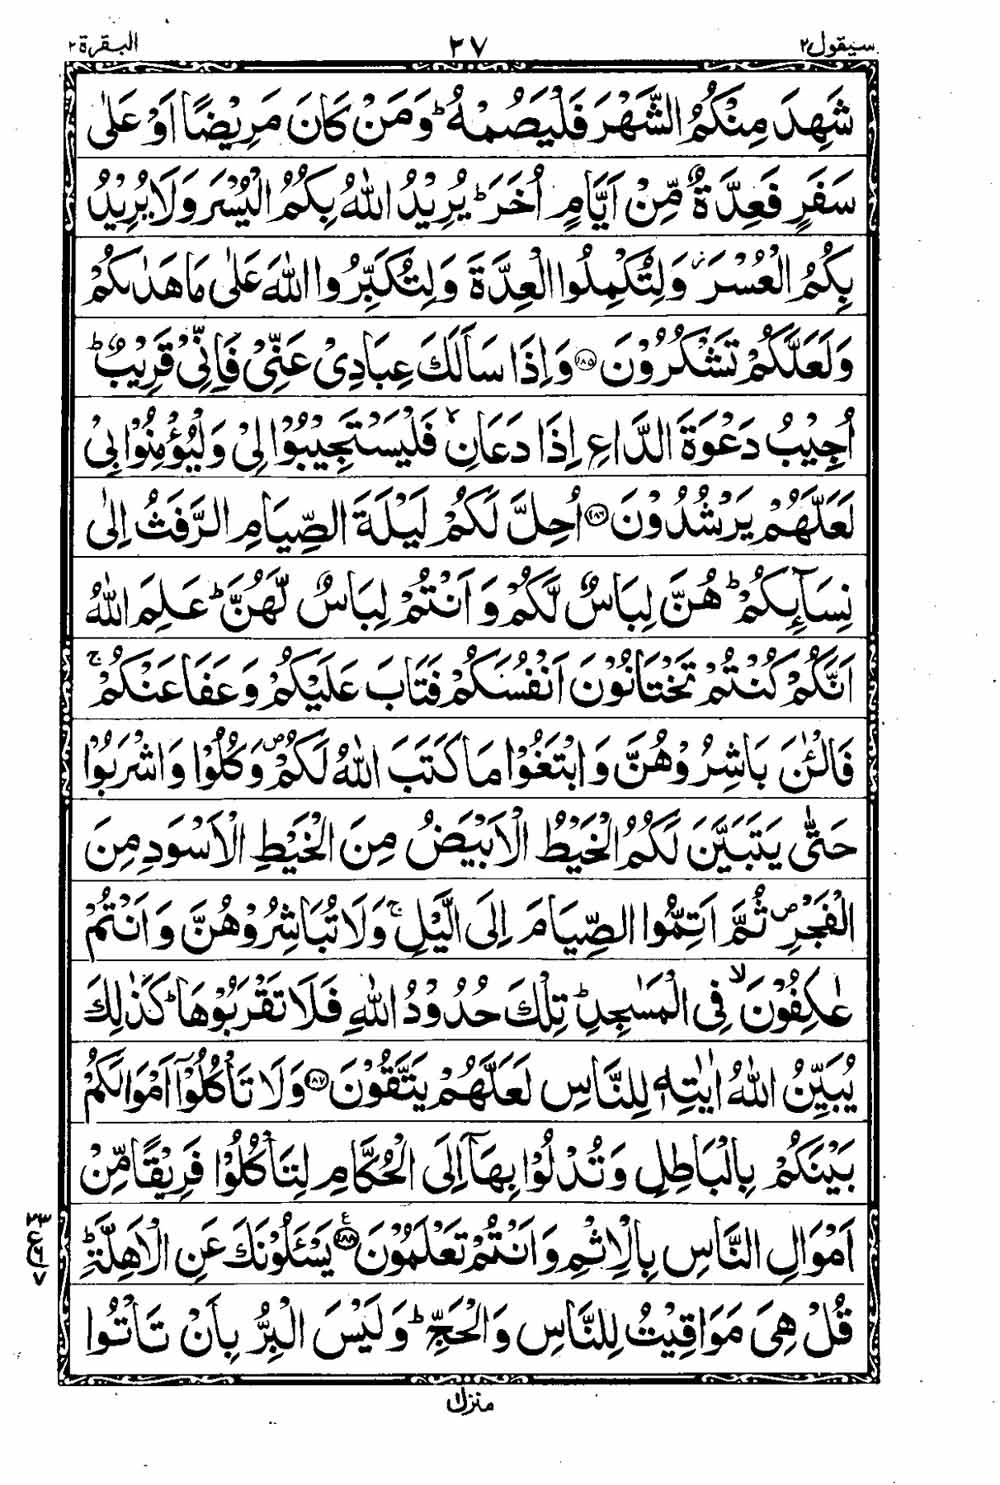 سيقول ٢ ٢٧ البقرة ٢
شَهِدَ مِنْكُمُ الشَّهْرَ فَلْيَصُمْهُ ؕ وَمَنْ كَانَ مَرِيْضًا اَوْ عَلٰى
سَفَرٍ فَعِدَّةٌ مِّنْ اَيَّامٍ اُخَرَ ؕ يُرِيْدُ اللّٰهُ بِكُمُ الْيُسْرَ وَلَا يُرِيْدُ
بِكُمُ الْعُسْرَ ؗ وَلِتُكْمِلُوا الْعِدَّةَ وَلِتُكَبِّرُوا اللّٰهَ عَلٰى مَا هَدٰىكُمْ
وَلَعَلَّكُمْ تَشْكُرُوْنَ ﴿۱۸۵﴾ وَاِذَا سَاَلَكَ عِبَادِىْ عَنِّىْ فَاِنِّىْ قَرِيْبٌ ؕ
اُجِيْبُ دَعْوَةَ الدَّاعِ اِذَا دَعَانِ ۙ فَلْيَسْتَجِيْبُوْا لِىْ وَلْيُؤْمِنُوْا بِىْ
لَعَلَّهُمْ يَرْشُدُوْنَ ﴿۱۸۶﴾ اُحِلَّ لَكُمْ لَيْلَةَ الصِّيَامِ الرَّفَثُ اِلٰى
نِسَآئِكُمْ ؕ هُنَّ لِبَاسٌ لَّكُمْ وَاَنْتُمْ لِبَاسٌ لَّهُنَّ ؕ عَلِمَ اللّٰهُ
اَنَّكُمْ كُنْتُمْ تَخْتَانُوْنَ اَنْفُسَكُمْ فَتَابَ عَلَيْكُمْ وَعَفَا عَنْكُمْ ۚ
فَالْـٰٔنَ بَاشِرُوْهُنَّ وَابْتَغُوْا مَا كَتَبَ اللّٰهُ لَكُمْ ۪ وَكُلُوْا وَاشْرَبُوْا
حَتّٰى يَتَبَيَّنَ لَكُمُ الْخَيْطُ الْاَبْيَضُ مِنَ الْخَيْطِ الْاَسْوَدِ مِنَ
الْفَجْرِ ۪ ثُمَّ اَتِمُّوا الصِّيَامَ اِلَى الَّيْلِ ۚ وَلَا تُبَاشِرُوْهُنَّ وَاَنْتُمْ
عٰكِفُوْنَ ۙ فِى الْمَسٰجِدِ ؕ تِلْكَ حُدُوْدُ اللّٰهِ فَلَا تَقْرَبُوْهَا ؕ كَذٰلِكَ
يُبَيِّنُ اللّٰهُ اٰيٰتِهٖ لِلنَّاسِ لَعَلَّهُمْ يَتَّقُوْنَ ﴿۱۸۷﴾ وَلَا تَاْكُلُوْۤا اَمْوَالَكُمْ
بَيْنَكُمْ بِالْبَاطِلِ وَتُدْلُوْا بِهَاۤ اِلَى الْحُكَّامِ لِتَاْكُلُوْا فَرِيْقًا مِّنْ
اَمْوَالِ النَّاسِ بِالْاِثْمِ وَاَنْتُمْ تَعْلَمُوْنَ ﴿۱۸۸﴾ ع يَسْـَٔلُوْنَكَ عَنِ الْاَهِلَّةِ ؕ
قُلْ هِىَ مَوَاقِيْتُ لِلنَّاسِ وَالْحَجِّ ؕ وَلَيْسَ الْبِرُّ بِاَنْ تَاْتُوا
٢٣
ع
٦
٧
منزل ١